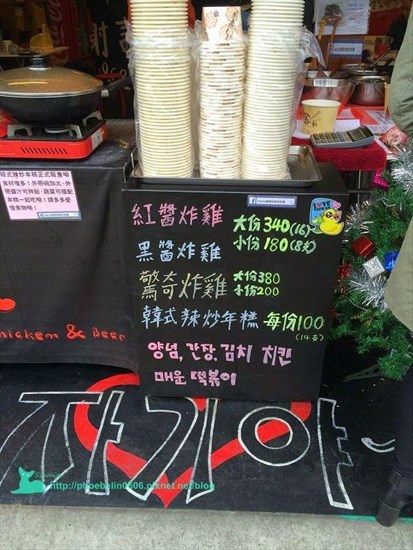 紅醬炸雞 大份340(16)
小份180(8支)
黑醬炸雞
驚奇炸雞 大份380
小份200
韓式辣炒年糕 每份100
(14支)
양념, 간장, 김치 치킨
매운 떡볶이
chicken & Beer
자기야~
http://phoebelin0506.pixnet.net/blog